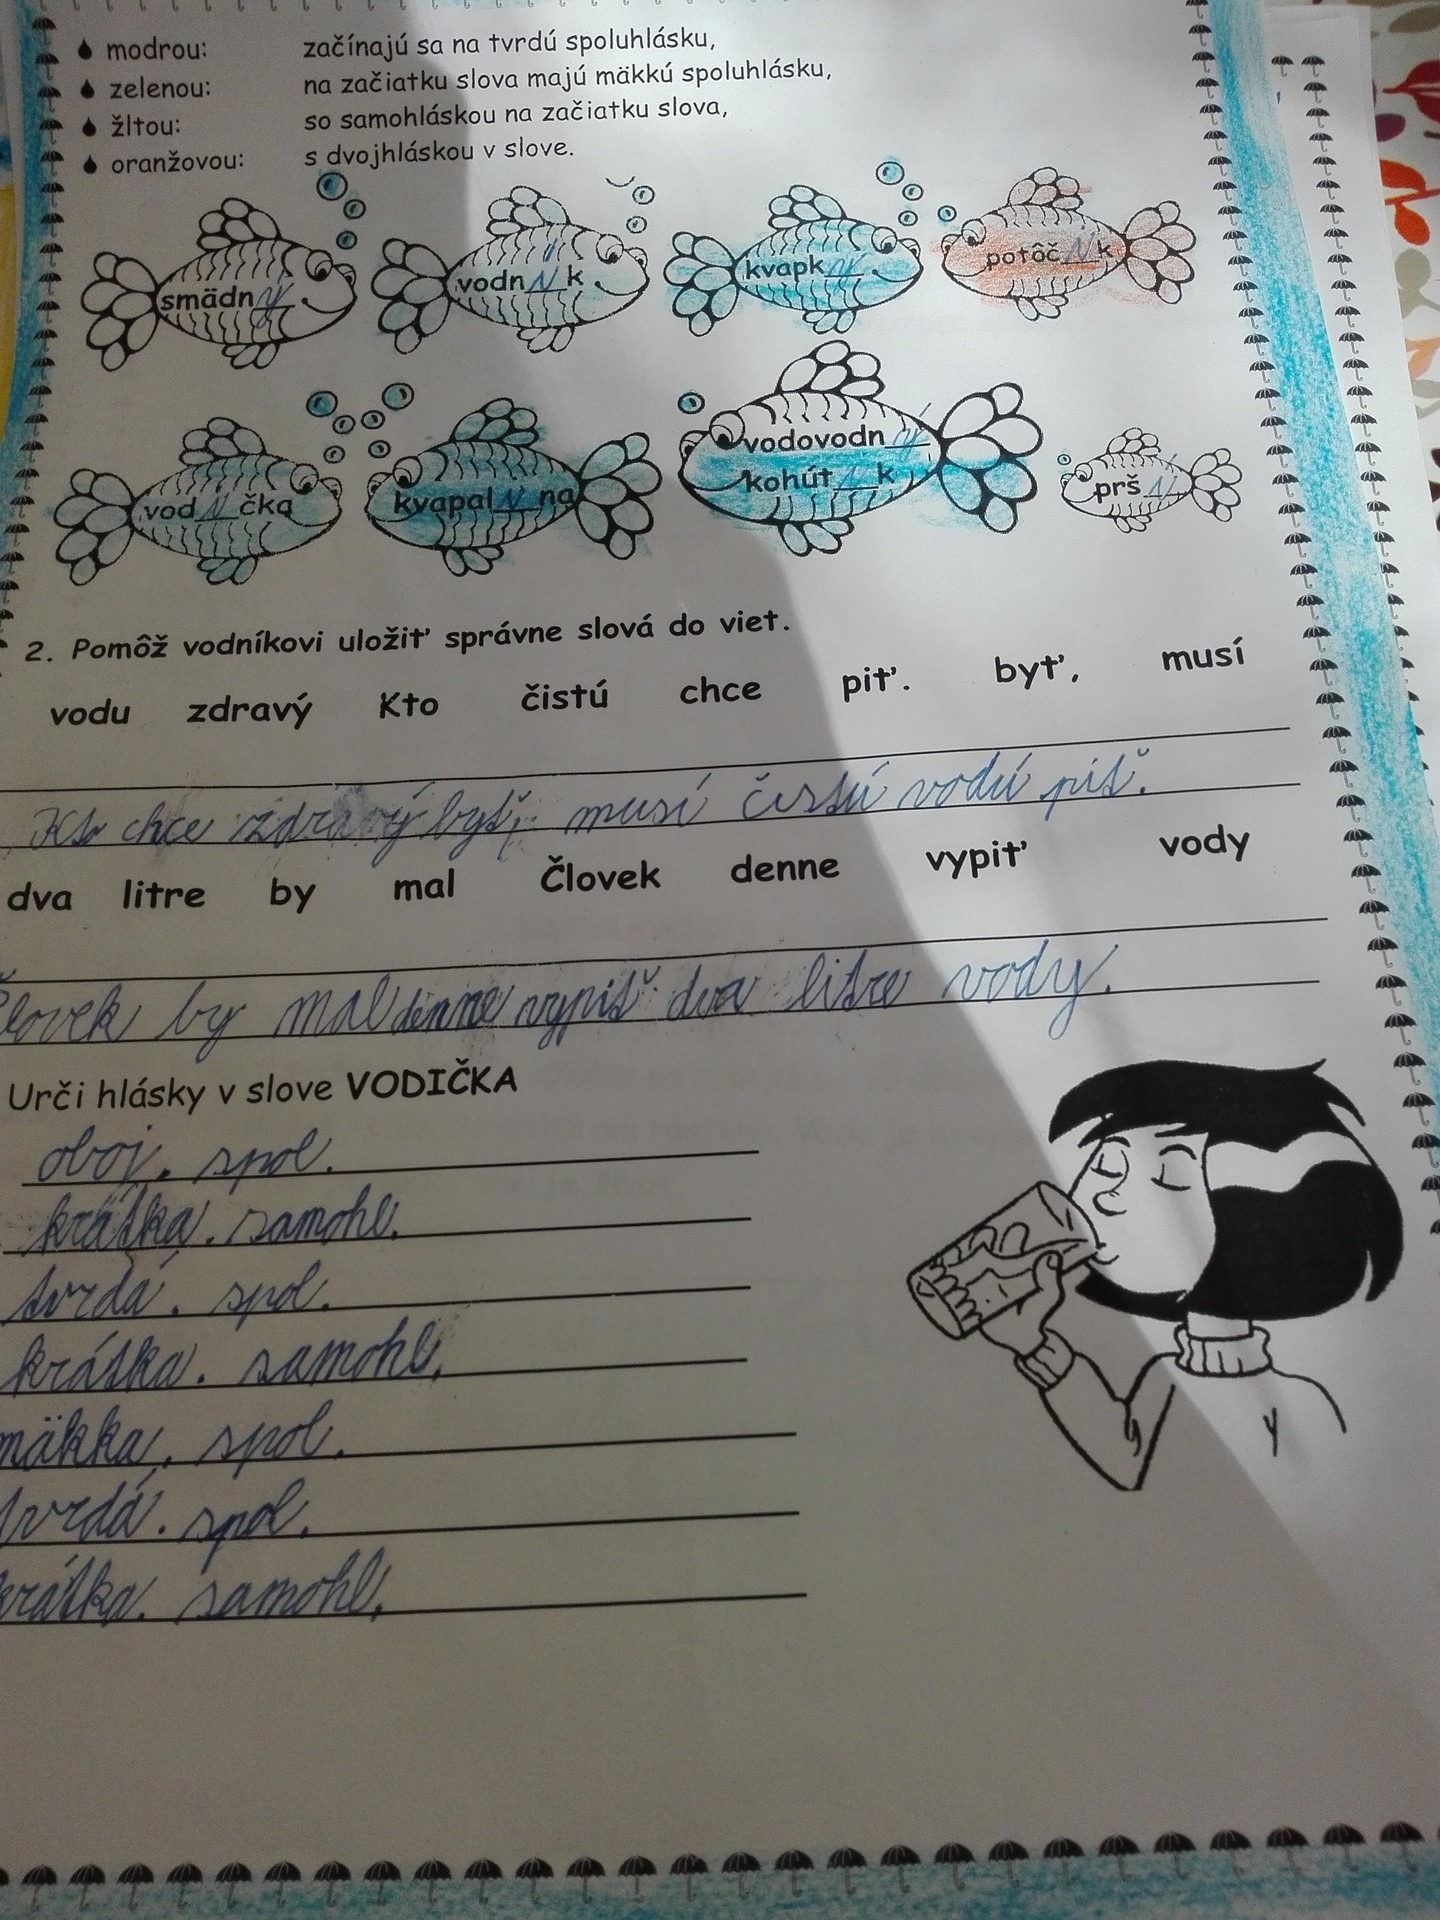 modrou: začínajú sa na tvrdú spoluhlásku,
zelenou: na začiatku slova majú mäkkú spoluhlásku,
žltou: so samohláskou na začiatku slova,
oranžovou: s dvojhláskou v slove.
smädný vodník kvapky potôčik
vodička kvapalina vodovodný kohútik prší
2. Pomôž vodníkovi uložiť správne slová do viet.
vodu zdravý Kto čistú chce piť. byť, musí
Kto chce zdravý byť, musí čistú vodú piť.
dva litre by mal Človek denne vypiť vody
Človek by mal denne vypiť dva litre vody.
Urči hlásky v slove VODIČKA
oboj. spol.
krátka. samohl.
tvrdá. spol.
krátka. samohl.
mäkka. spol.
tvrdá. spol.
krátka. samohl.